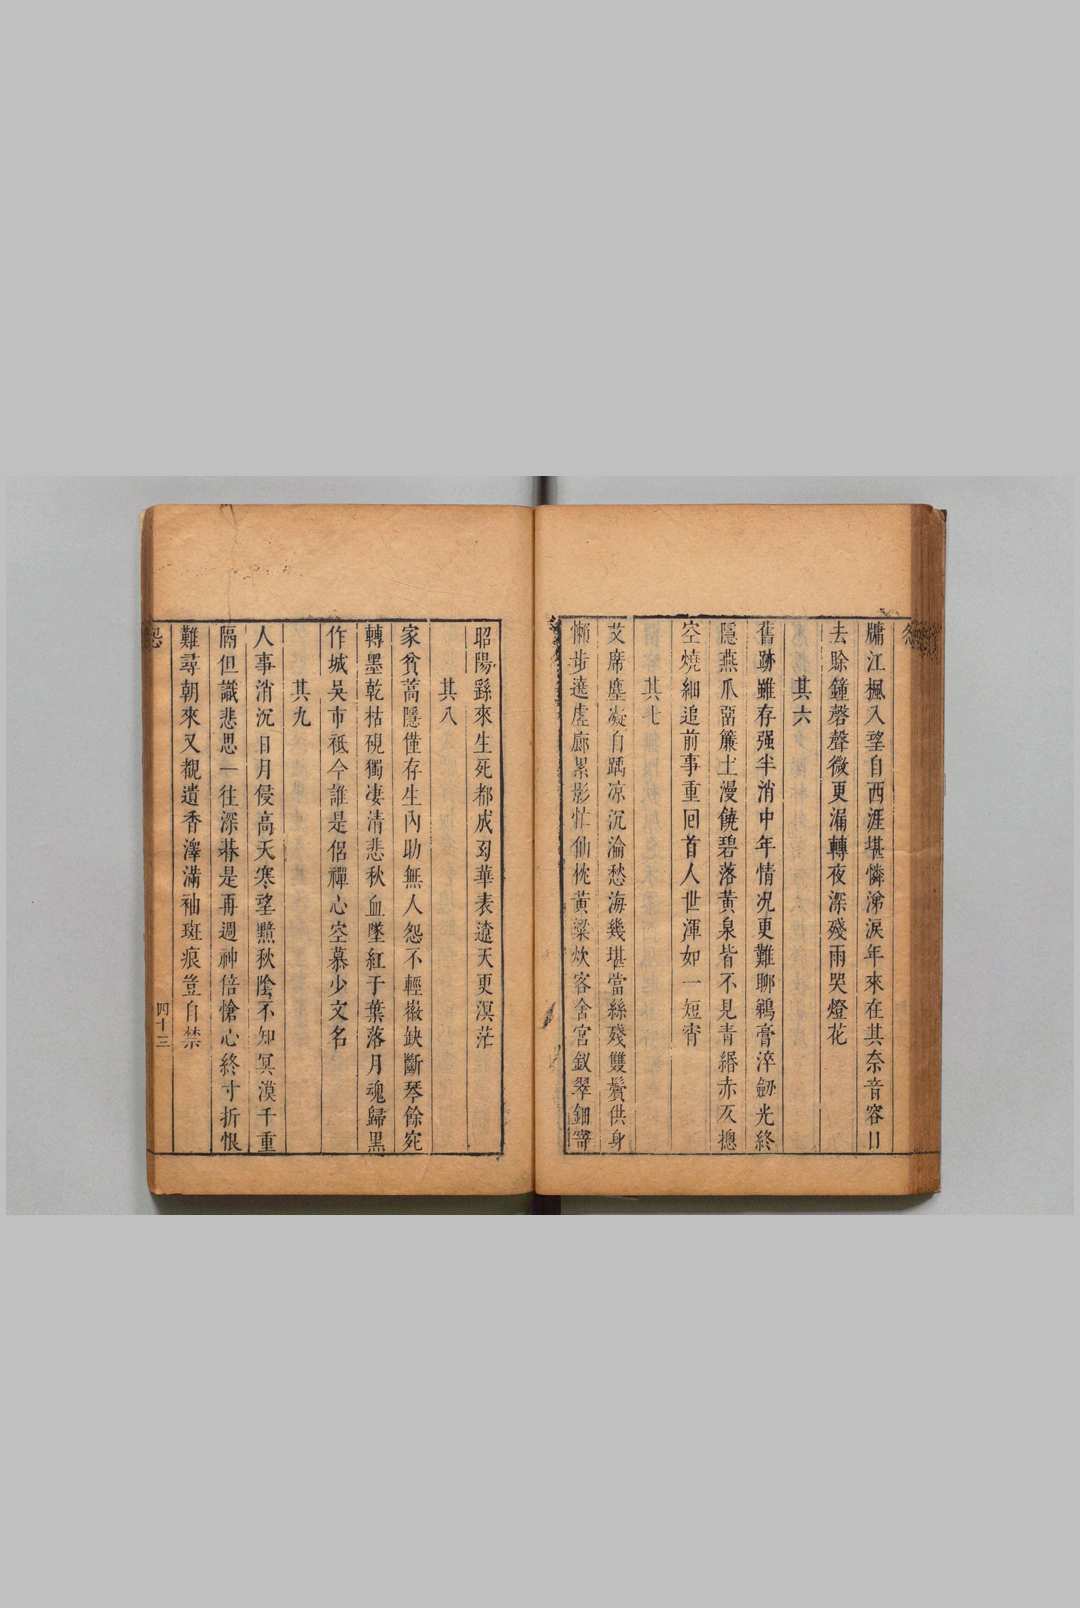 牗江楓入望自西涯堪憐涕淚年來在其奈音容日
去賒鐘磬聲微更漏轉夜深殘雨哭燈花
其六
舊跡雖存强半消中年情况更難聊鵜膏淬劒光終
隱燕爪畱簾土漫饒碧落黄泉皆不見青緡赤仄摠
空燒細追前事重回首人世渾如一短宵
其七
艾席塵凝自踽凉沉淪愁海幾堪當絲殘雙鬢供身
懶步遶虚廊累影忙仙枕黄粱炊客舍宮釵翠鈿寄
昭陽繇來生死都成刄華表遼天更溟茫
其八
家貧蒿隱僅存生内助無人怨不輕徽缺斷琴餘宛
轉墨乾枯硯獨凄清悲秋血墜紅于葉落月魂歸黒
作城吴市祇今誰是侣禪心空慕少文名
其九
人事消沉日月侵高天寒望黯秋陰不知冥漠千重
隔但識悲思一徃深碁是再週神倍愴心終寸折恨
難尋朝來又覩遺香澤滿袖斑痕豈自禁
四十三